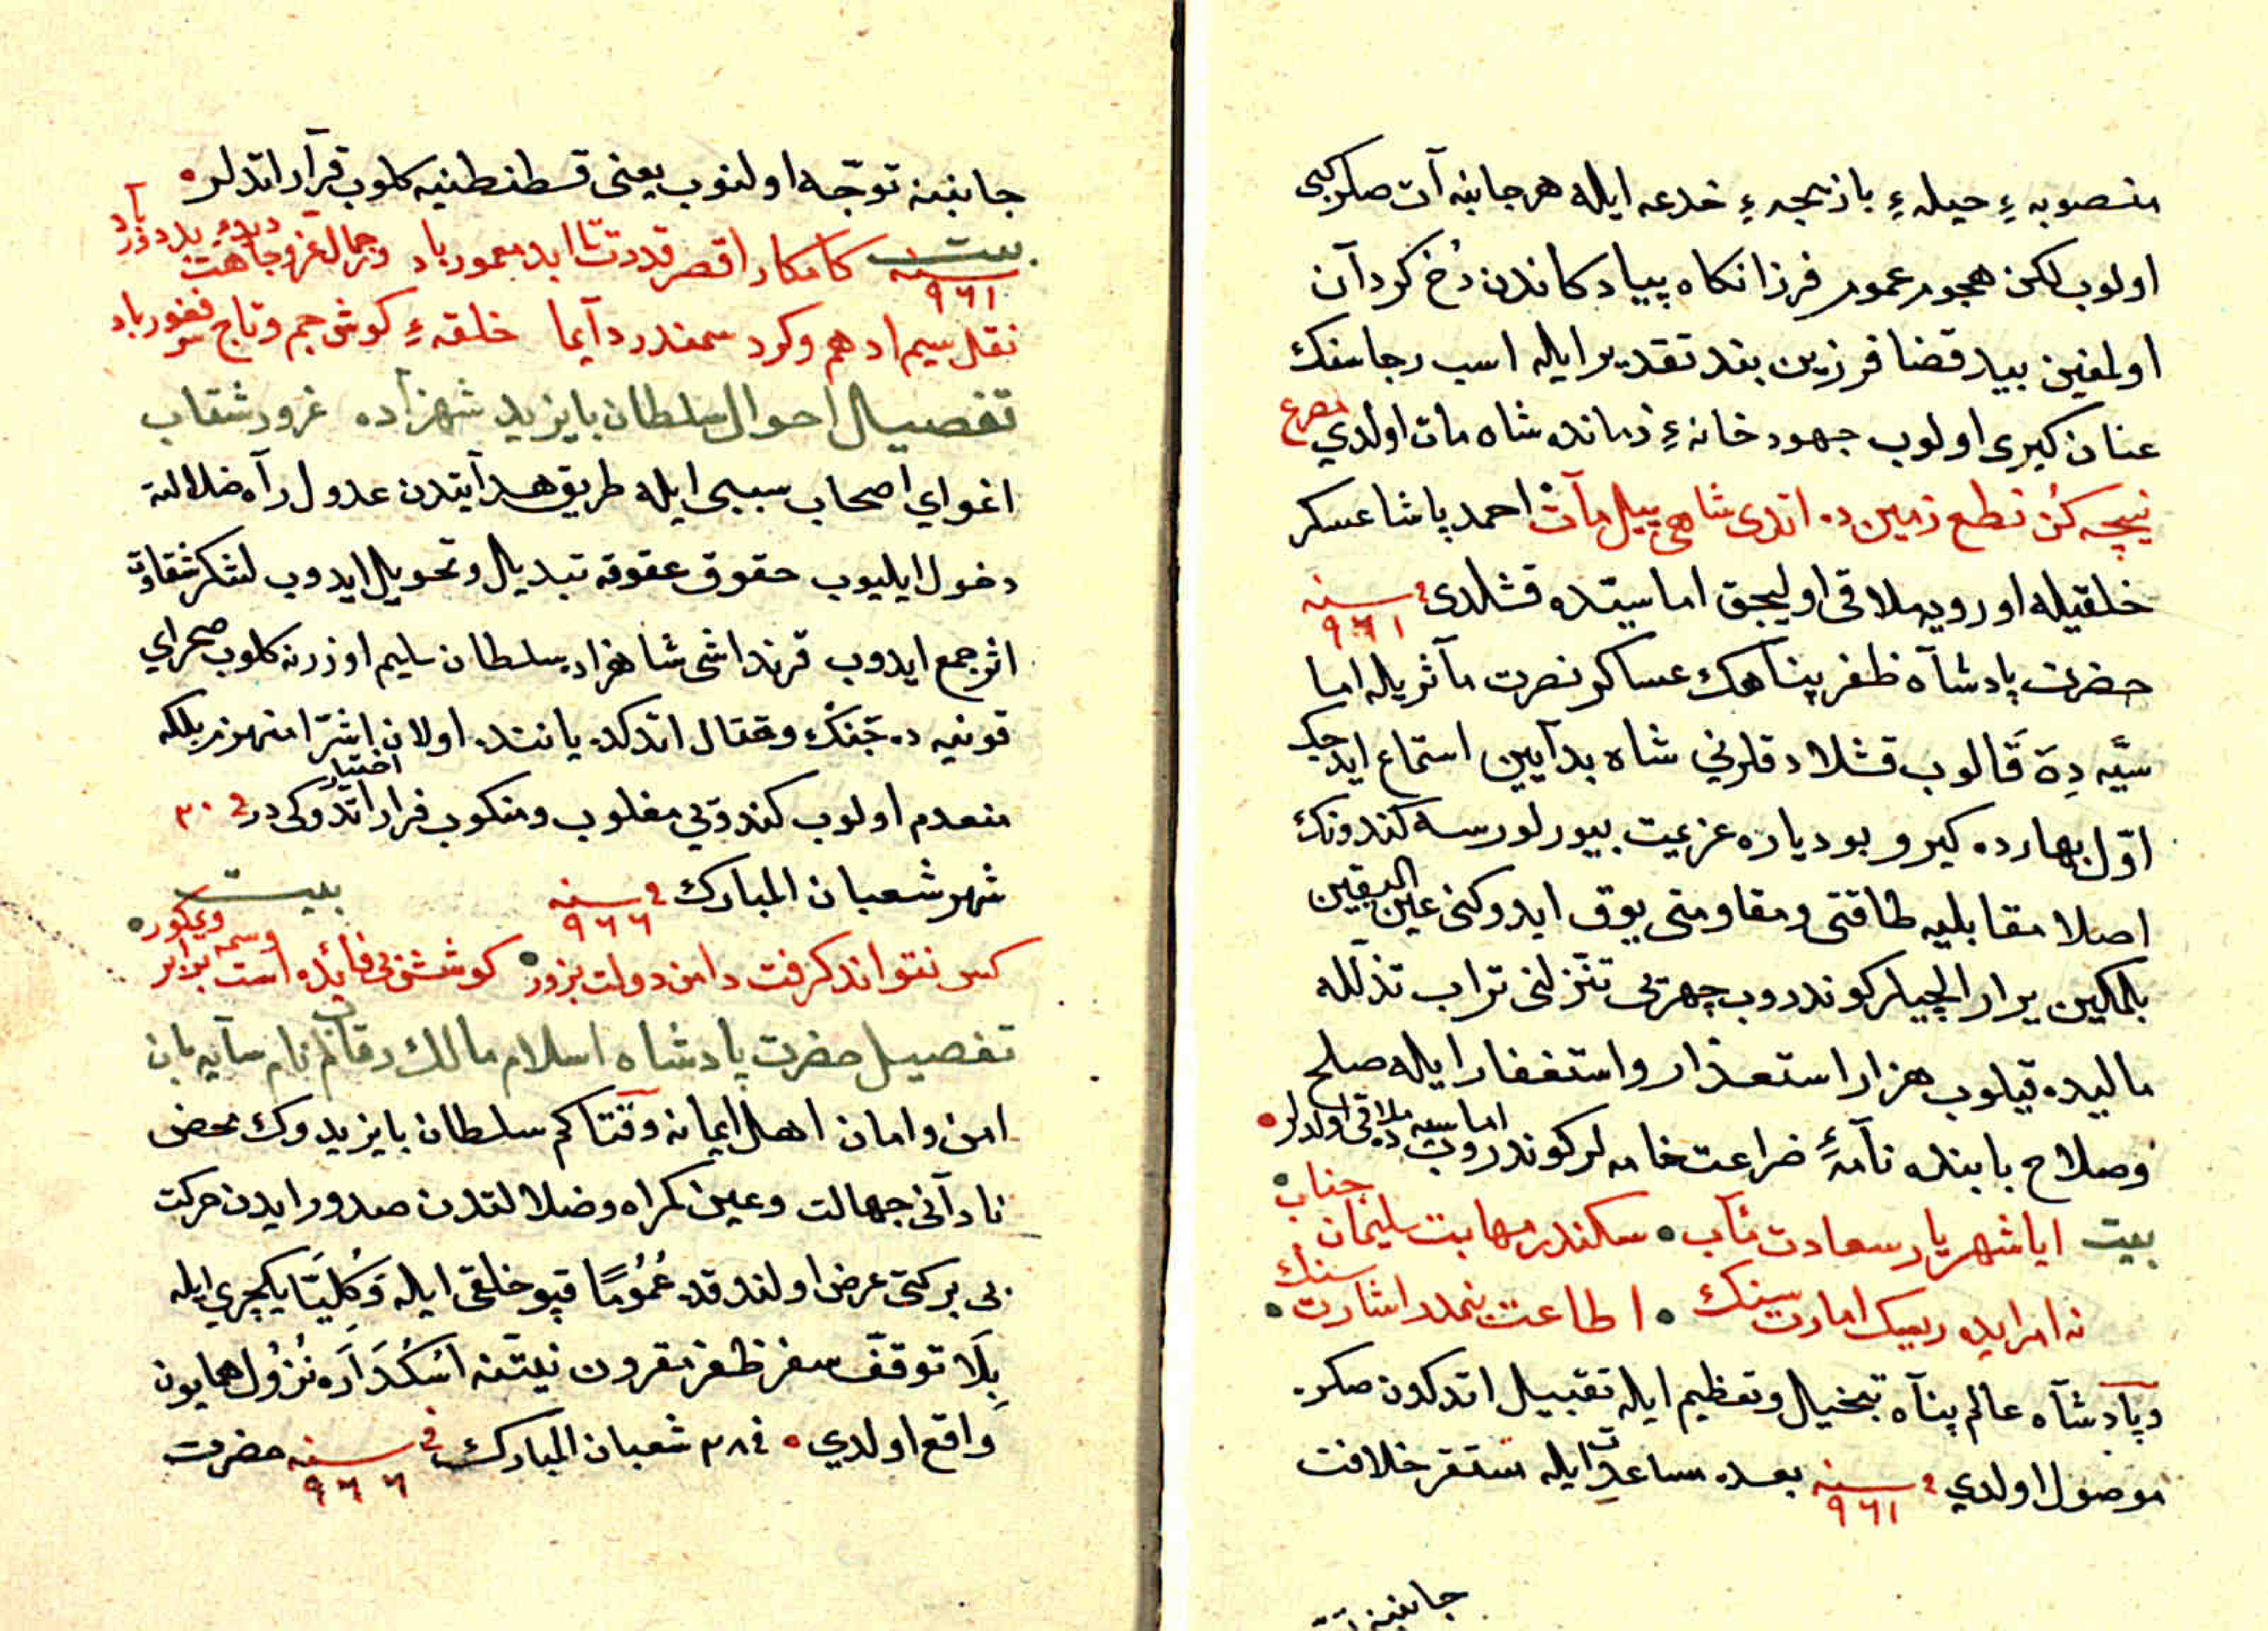 منصوبهٔ حیلهٔ بازیچهٔ خدعه ایله هر جانبه آت صکرکبی
اولوب لکن همجور عمور فرزانکاه پیادکاندن رخ کردان
اولمغین بیدقضا فرزین بند تقدیر ایله اسب رجاسنک
عنان کیری اولوب جهود خانهٔ زمانده شاه مات اولدي مصرع
نیجه کُن نطع زمین ده اتدی شاهی پیل مات احمد پاشا عسکر
خلقیله اوردویه ملاقی اولیجق اماسیتده قشلدی فی سنه ۹٦١
حضرت پادشاه ظفر پناهک عساکر نصرت مآثریله اما
سیّه دِهَ قَالوب قشلادقلرني شاه بدآیین استماع ایدجک
اوّل بهارده کیرو بو دیاره عزیمت بیورلورسه کندونک
اصلا مقابلیه طاقتی ومقاومتی یوق ایدوکنی عین الیقین
بلمکین یرار الچیلر کوندروب چهره‌یی تنزلنی تراب تذلّله
مالیده قیلوب هزار استعذار واستغفار ایله صلح
وصلاح بابنده نامهٔ ضراعت خامه لر کوندروب اماسیه ده ملاقی اولدلر
بیت ایا شهریار سعادت مآب سکندر مهابت سلیمان جناب
نه امر ایده ریسک امارت سنک اطاعت بنمدر اشارت سنک
وپادشاه عالم پناه تبخیل وتعظیم ایله تقبیل اتدکدن صکره
موصول اولدي فی سنه ۹٦١ بعده مساعدت ایله مستقر خلافت
جانبنه
جانبنه توجّه اولنوب یعنی قسطنطنیه کلوب قرار اتدلر
بیت سنه ۹٦١ کامکارا قصر قدرت تا ابد معمور باد وجمال عز وجاهت دیدهٔ بد دور باد
نقل سیم ادهم وکرد سمندر دآیما خلقهٔ کوش جم وتاج سر فغفور باد
تفصیل احوال سلطان بایزید شهزاده غرور شقاب
اغواي اصحاب سببی ایله طریق هدایتدن عدول راه ضلالته
دخول ایلیوب حقوق عقوقه تبدیل وتحویل ایدوب لشکر شقاوت
اثر جمع ایدوب قرنداشی شاهزاده سلطان سلیم اوزرنه کلوب صحرای
قونیه ده جنک وقتال اتدکده یاننده اولان اشرّا منهزم بلکه
منعدم اولوب کندوی مغلوب ومنکوب فرار اختیار اتدوکی در فی ٣٠
شهر شعبان المبارک فی سنه ۹٦٦ بیت
کس نتواند کرفت دامن دولت بزور کوشش بی فائده است وسمه بر ابروی کور
تفصیل حضرت پادشاه اسلام مالک رقاب انام سایه بان
امن وامان اهل ایمانه وقتا کم سلطان بایزیدوک محض
نادانی جهالت وعین کمراه وضلالتدن صدور ایدن حرکت
بی برکتی عرض اولندوقده عُمُومًا قپو خلقی ایله وَکُلِیّتًا یکیچری ایله
بِلَا توقف سفر ظفر مقرون نیتنه اُسکُدَاره نُزُول همایون
واقع اولدي فی ٢٨ شعبان المبارک فی سنه ۹٦٦ حضرت